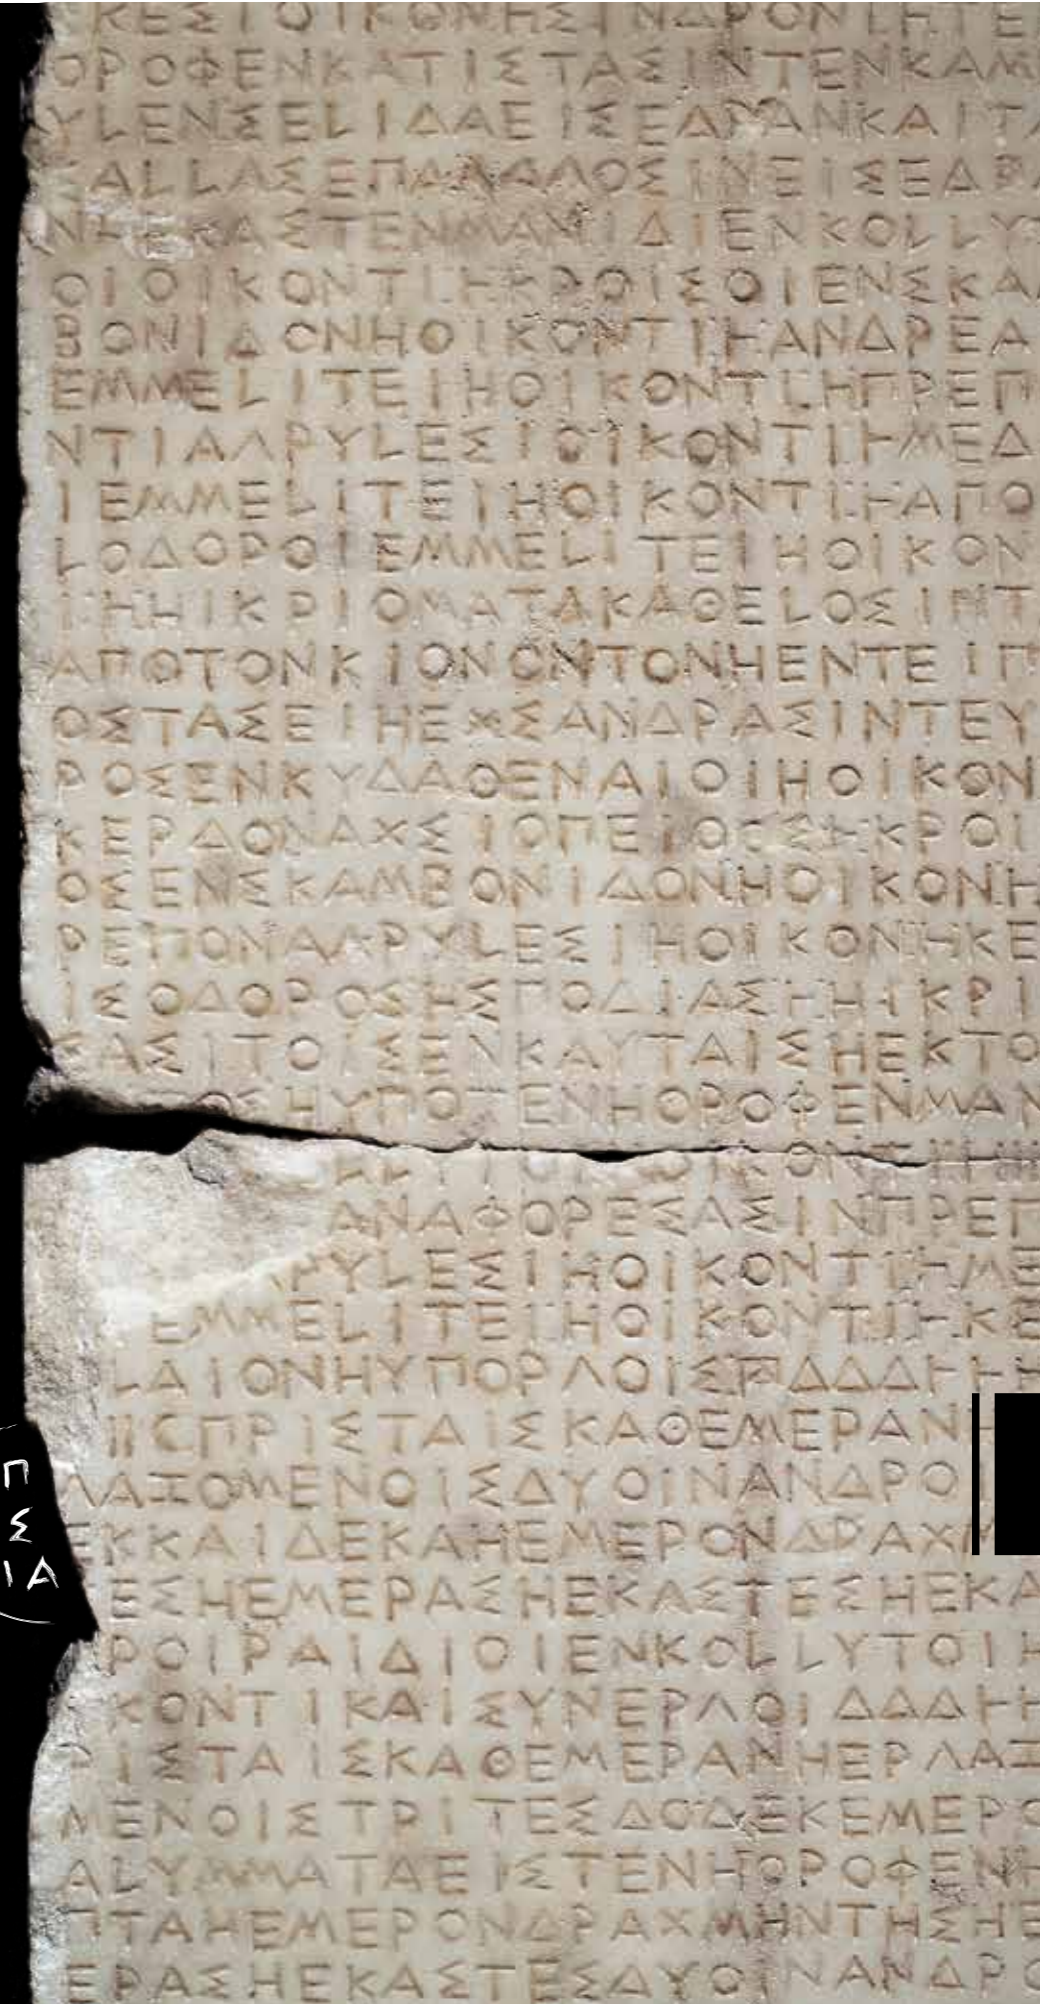 ΚΕΣΙΟΙΚΟΝΗΣΙΝΔΡΟΝΙΗΤΕ
ΟΡΟΦΕΝΚΑΤΙΣΤΑΣΙΝΤΕΝΚΑΜ
ΥLΕΝΣΕLΙΔΑΕΙΣΕΔΡΑΝΚΑΙΤΑ
ΑLLΑΣΕΠΑΛΑΛΟΣΙΝΕΙΣΕΔΡΑ
ΝΗΕΚΑΣΤΕΝΜΑΝΙΔΙΕΝΚΟLLΥΤ
ΟΙΟΙΚΟΝΤΙΗΚΡΟΙΣΟΙΕΝΣΚΑ
ΒΟΝΙΔΟΝΗΟΙΚΟΝΤΙΗΑΝΔΡΕΑ
ΕΜΜΕLΙΤΕΙΗΟΙΚΟΝΤΙΗΠΡΕΠ
ΝΤΙΑΛΡΥLΕΣΙΟΙΚΟΝΤΙΗΜΕΔ
ΙΕΜΜΕLΙΤΕΙΗΟΙΚΟΝΤΙΗΑΠΟ
LΟΔΟΡΟΙΕΜΜΕLΙΤΕΙΗΟΙΚΟΝ
ΙΗΗΙΚΡΙΟΜΑΤΑΚΑΘΕLΟΣΙΝΤ
ΑΠΟΤΟΝΚΙΟΝΟΝΤΟΝΗΕΝΤΕΙΠ
ΟΣΤΑΣΕΙΗΕΧΣΑΝΔΡΑΣΙΝΤΕΥ
ΡΟΣΕΝΚΥΔΑΘΕΝΑΙΟΙΗΟΙΚΟΝ
ΚΕΡΔΟΝΑΧΣΙΟΠΕΙΘΕΣΗΚΡΟΙ
ΟΣΕΝΣΚΑΜΒΟΝΙΔΟΝΗΟΙΚΟΝΗ
ΡΕΠΟΝΑΛΡΥLΕΣΙΗΟΙΚΟΝΗΚΕ
ΙΣΟΔΟΡΟΣΗΣΠΟΔΙΑΣΗΗΙΚΡΙ
ΣΑΣΙΤΟΙΣΕΝΚΑΥΤΑΙΣΗΕΚΤΟ
ΟΣΗΥΠΟΤΕΝΗΟΡΟΦΕΝΜΑΝ
LΥΤΟΙΗΟΙΚΟΝΤΙ
ΑΝΑΦΟΡΕΣΑΣΙΝΠΡΕΠ
ΡΥLΕΣΙΗΟΙΚΟΝΤΙΗΜΕ
ΕΜΜΕLΙΤΕΙΗΟΙΚΟΝΤΙΗΚΕ
LΑΙΟΝΗΥΠΟΡΛΟΙΣ𐅄ΔΔΔΗΗ
ΙΙCΠΡΙΣΤΑΙΣΚΑΘΕΜΕΡΑΝΗ
ΛΑΙΟΜΕΝΟΙΣΔΥΟΙΝΑΝΔΡΟΙ
ΕΚΚΑΙΔΕΚΑΗΕΜΕΡΟΝΔΡΑΧΜ
ΕΣΗΕΜΕΡΑΣΗΕΚΑΣΤΕΣΗΕΚΑ
ΡΟΙΡΑΙΔΙΟΙΕΝΚΟLLΥΤΟΙΗ
ΚΟΝΤΙΚΑΙΣΥΝΕΡΛΟΙΔΔΔΗΗ
ΡΙΣΤΑΙΣΚΑΘΕΜΕΡΑΝΗΕΡΛΑΙ
ΜΕΝΟΙΣΤΡΙΤΕΣΔΟΔΕΚΕΜΕΡΟ
ΑLΥΜΜΑΤΑΕΙΣΤΕΝΗΟΡΟΦΕΝΗ
ΠΤΑΗΕΜΕΡΟΝΔΡΑΧΜΗΝΤΗΣΗΕ
ΕΡΑΣΗΕΚΑΣΤΕΣΔΥΟΙΝΑΝΔΡΟ
Π
Σ
ΙΑ